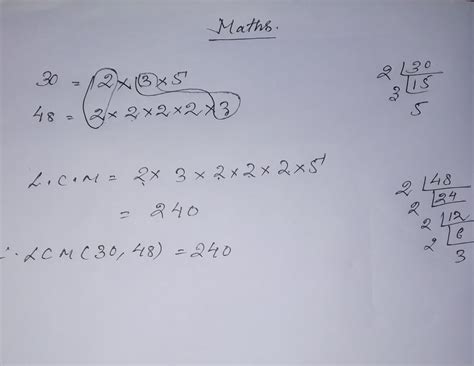 Maths.
30 = 2 × 3 × 5
48 = 2 × 2 × 2 × 2 × 3
L.C.M = 2 × 3 × 2 × 2 × 2 × 5
= 240
∴ LCM (30, 48) = 240
2 30
3 15
5
2 48
2 24
2 12
2 6
3